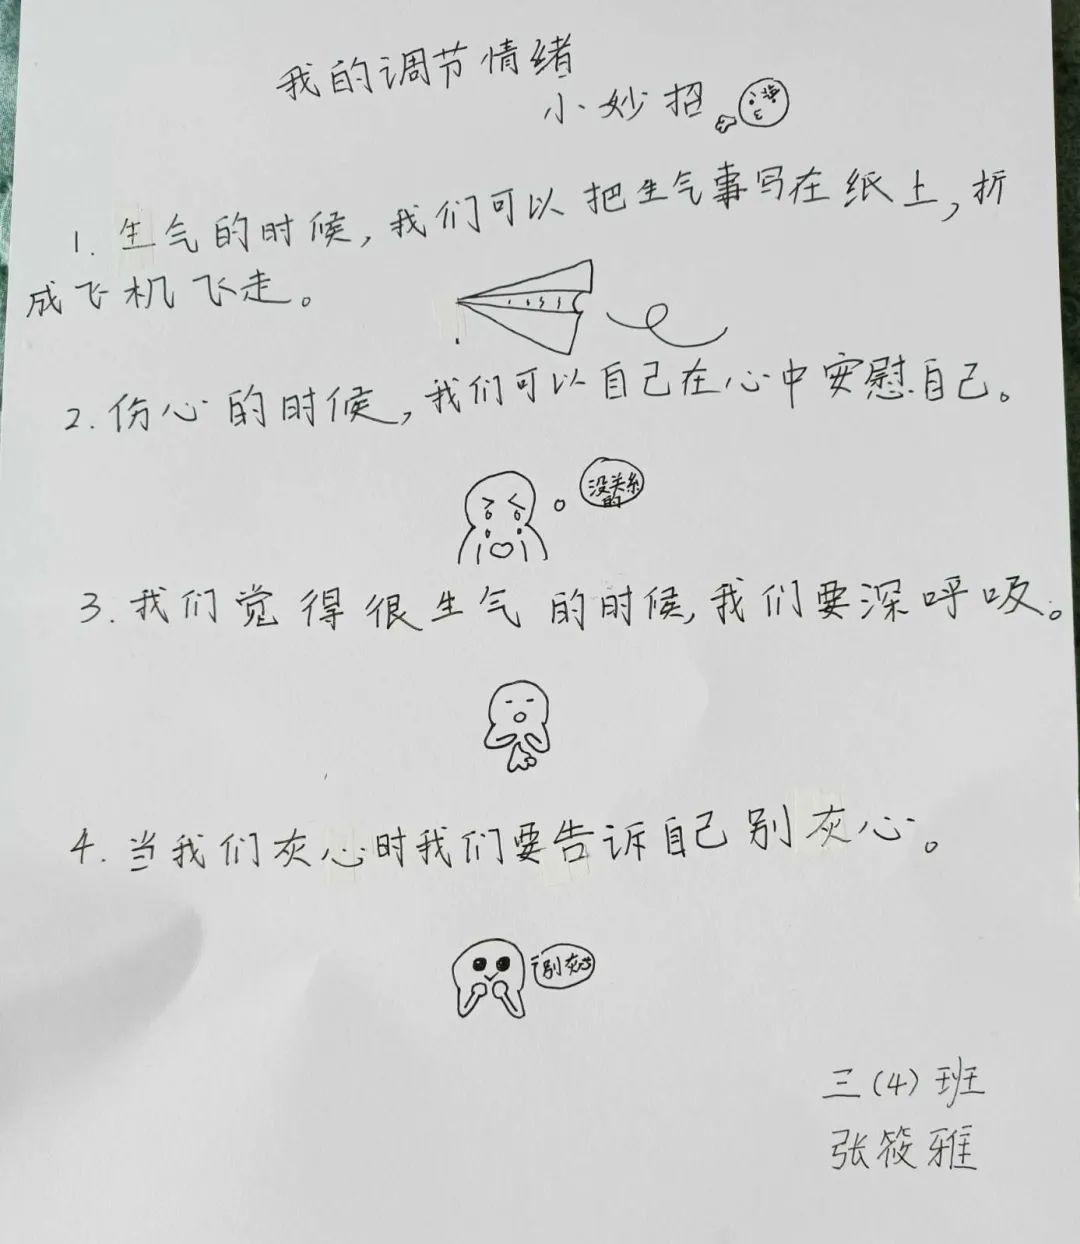 我的调节情绪
小妙招
1. 生气的时候,我们可以把生气事写在纸上,折
成飞机飞走。
2. 伤心的时候,我们可以自己在心中安慰自己。
没关系
的
3. 我们觉得很生气的时候,我们要深呼吸。
4. 当我们灰心时我们要告诉自己别灰心。
别灰心
三(4)班
张筱雅